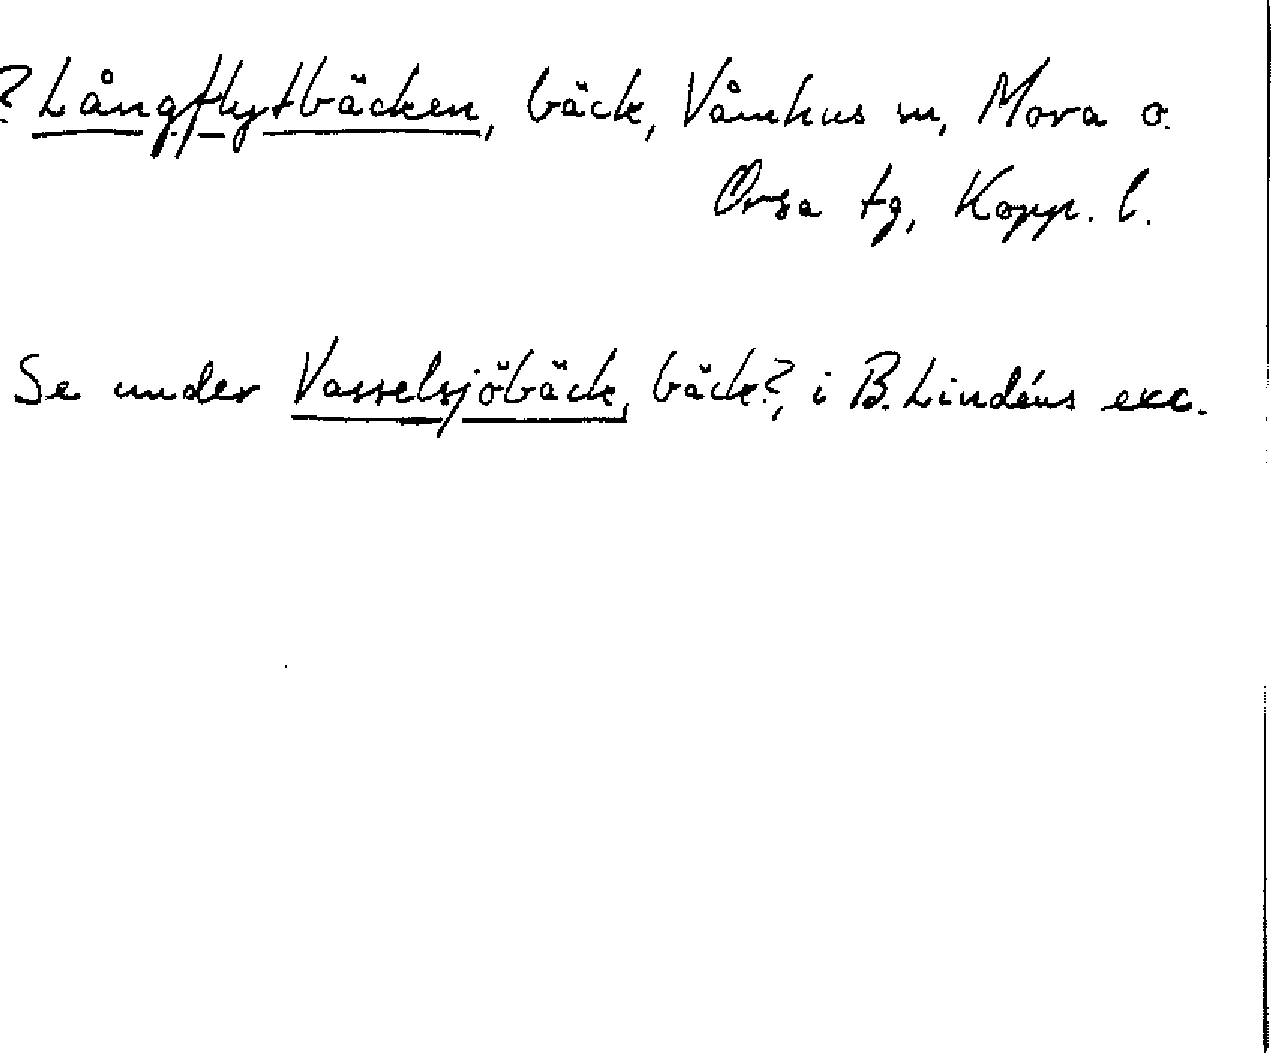 ? Långflytbäcken, bäck, Våmhus sn, Mora o.
Orsa tg, Kopp. l.
Se under Vasselsjöbäck, bäck?, i B. Lindéns exc.